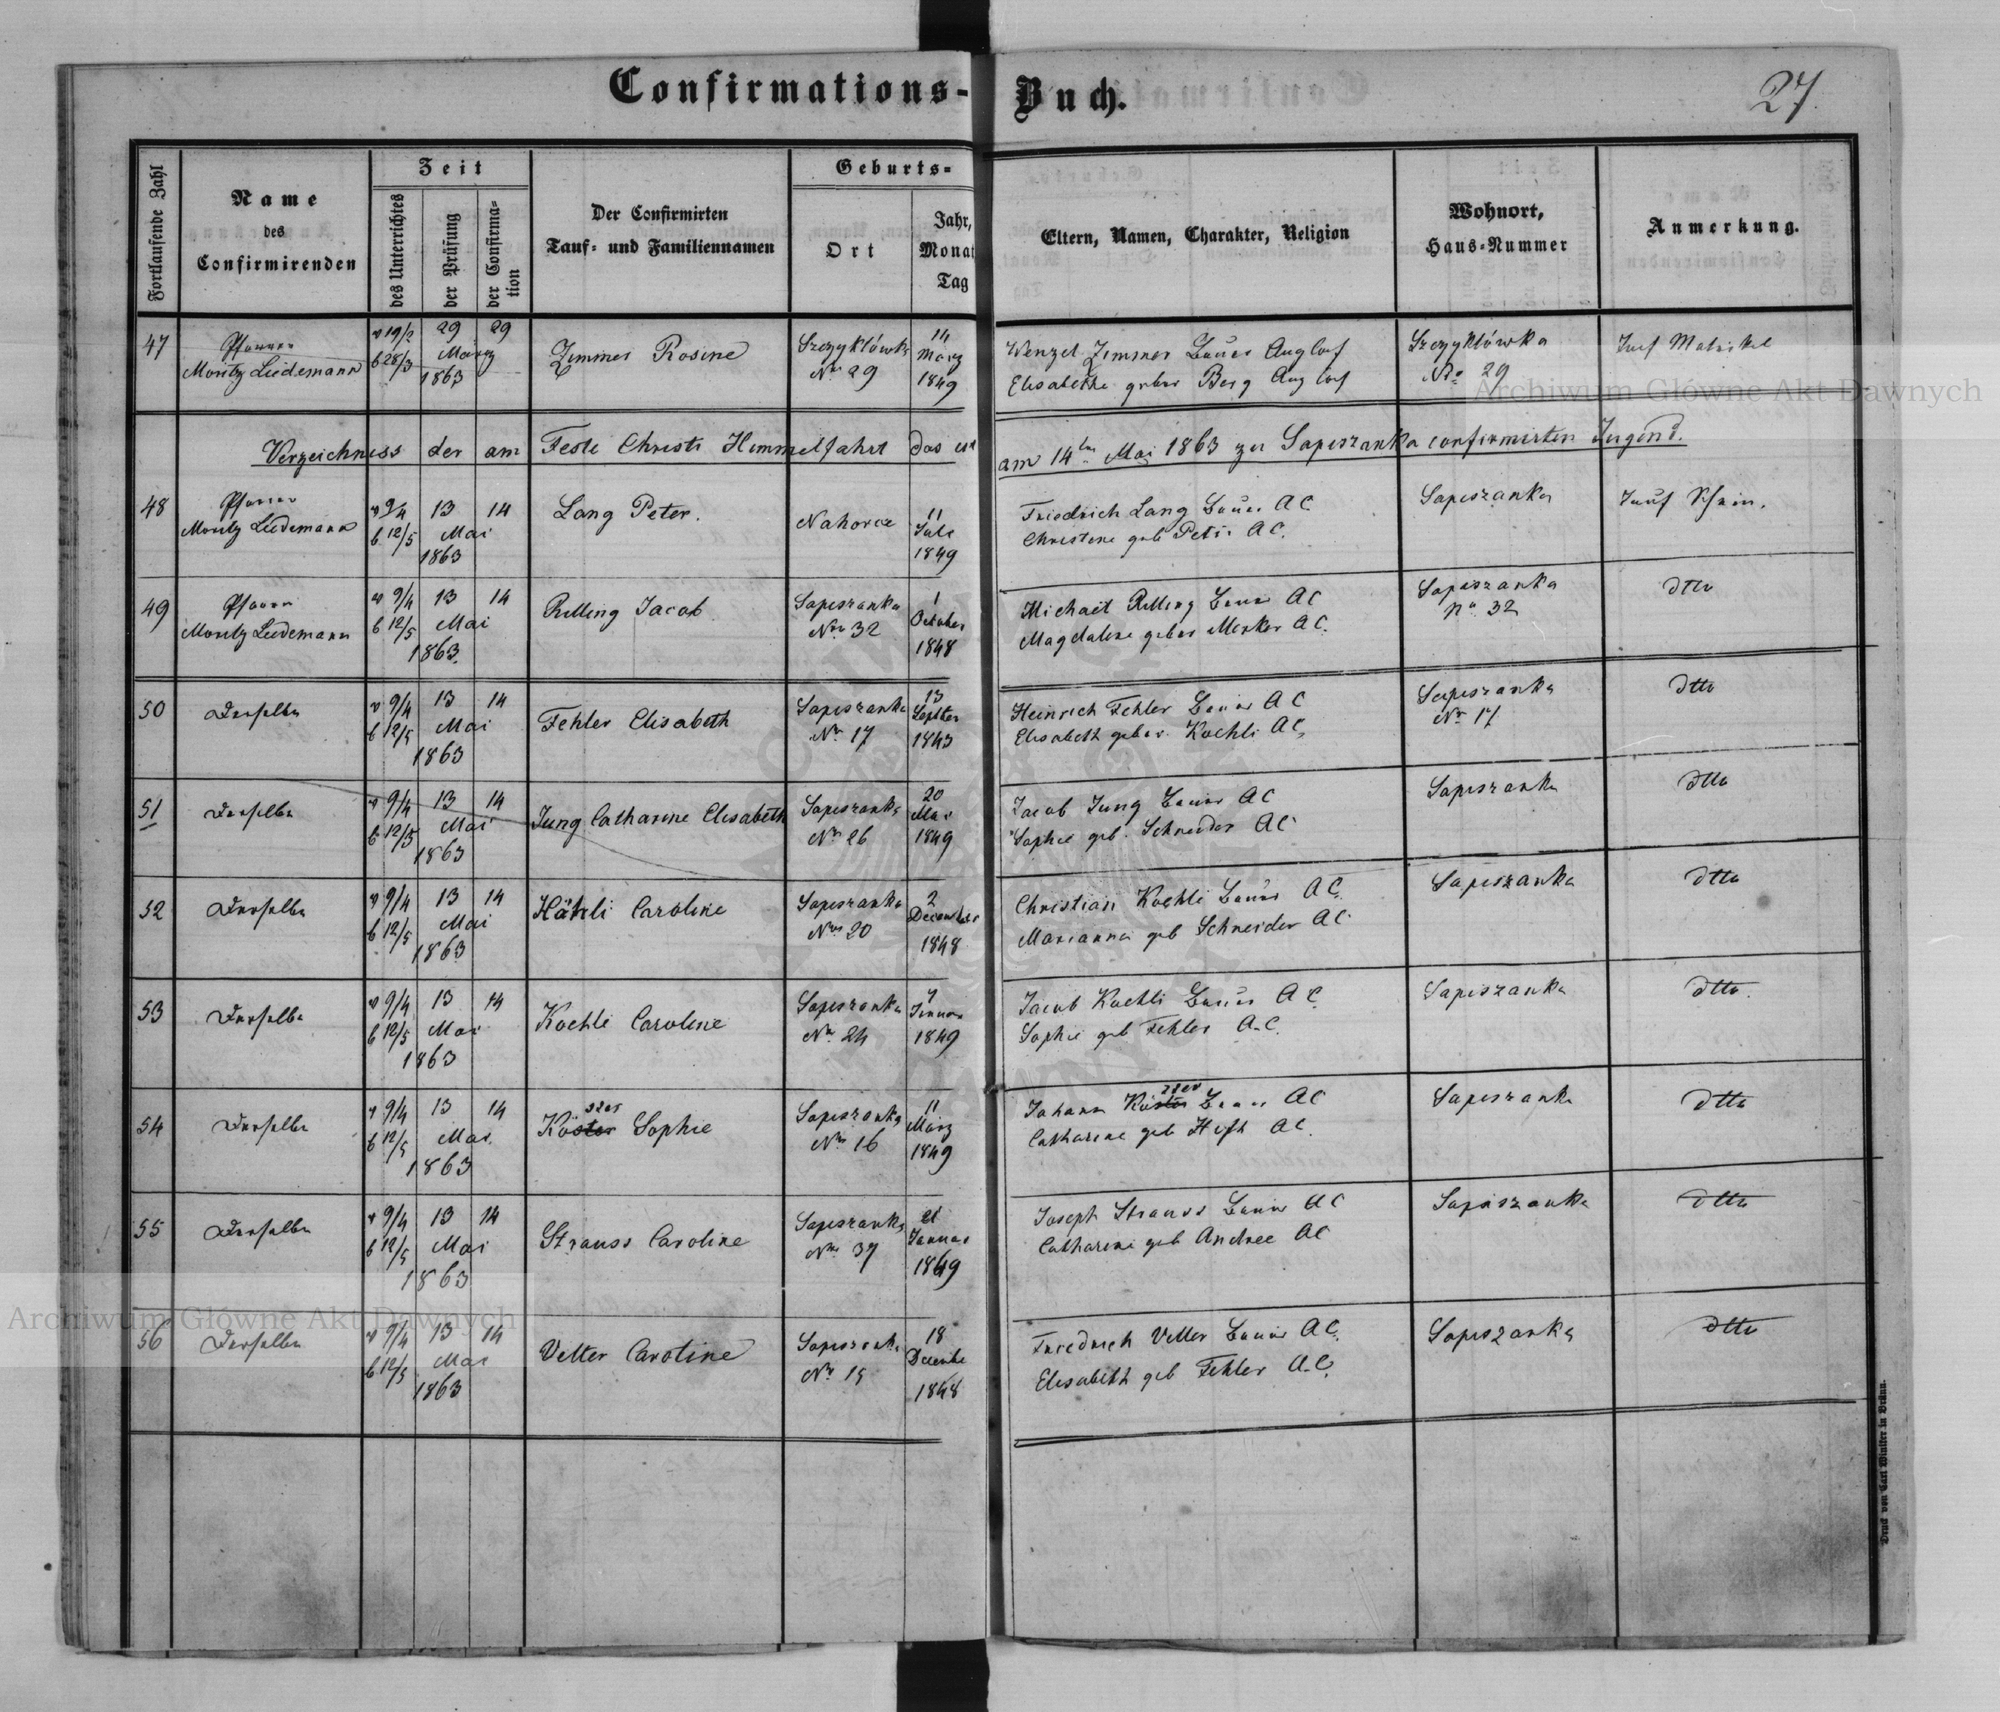 Confirmations-Buch.
27.
Fortlaufende Zahl
Name
des
Confirmirenden
Zeit
des Unterrichtes
der Prüfung
der Confirma-
tion
Der Confirmirten
Tauf- und Familiennamen
Geburts-
Ort
Jahr,
Monat
Tag
Eltern, Namen, Charakter, Religion
Wohnort,
Haus-Nummer
Anmerkung.
47
Pfarrer
Moritz Lüdemann
v 19/2
b 28/3
29 29
März
1863
Zimmer Rosine
Szczyklówka
Nr 29
14
März
1849
Wenzel Zimmer Bauer Augs Conf
Elisabetha gebor Berg Augs Conf
Szczyklówka
Nro 29
Archiwum Główne Akt Dawnych
Verzeichniss der am Feste Christi Himmelfahrt das ist
am 14ten Mai 1863 zu Sapieszanka confirmirten Jugend.
48
Pfarrer
Moritz Lüdemann
v 9/4
b 12/5
13 14
Mai
1863
Lang Peter.
Nahorce
11
Juli
1849
Friedrich Lang Bauer A C
Christine geb Petri A C.
Sapieszanka
Tauf Schein.
49
Pfarrer
Moritz Lüdemann
v 9/4
b 12/5
13 14
Mai
1863.
Rilling Jacob
Sapieszanka
Nro 32
1
October
1848
Michael Rilling Bauer A C
Magdalena gebor Merker A C.
Sapieszanka
No 32
dtto
50
Derselbe
v 9/4
b 12/5
13 14
Mai
1863
Fehler Elisabeth
Sapieszanka
Nr 17
13
Septber
1843
Heinrich Fehler Bauer A C
Elisabeth gebor. Koehli A C,
Sapieszanka
Nr 17
dtto
51
Derselbe
v 9/4
b 12/5
13 14
Mai
1863
Jung Catharine Elisabeth
Sapieszanka
Nr 26
20
Mai
1849
Jacob Jung Bauer A C
Sophie geb. Schneider A C
Sapieszanka
dtto
52
Derselbe
v 9/4
b 12/5
13 14
Mai
1863
Caroline
Sapieszanka
Nro 20
2
December
1848
Christian Koehli Bauer A C.
Marianna geb Schneider A C
Sapieszanka
dtto
53
Derselbe
v 9/4
b 12/5
13 14
Mai
1863
Koehli Caroline
Sapieszanka
Nr 24
Januar
1849
Jacob Koehli Bauer A C
Sophie geb Fehler A.C.
Sapieszanka
dtto.
54
Derselbe
v 9/4
b 12/5
13 14
Mai.
1863
Köster Sophie
Sapieszanka
Nr 16
11
März
1849
Johann Köster Bauer A C
Catharine geb A C.
Sapieszanka
dtto
55
Derselbe
v 9/4
b 12/5
13 14
Mai
1863
Strauss Caroline
Sapieszanka
Nro 37
21
Januar
1849
Joseph Strauss Bauer A C
Catharine geb Andree A C
Sapieszanka
dtto
56
Derselbe
v 9/4
b 12/5
13 14
Mai
1863
Vetter Caroline
Nr 15
18
1848
Friedrich Vetter Bauer A C.
Elisabeth geb Fehler A.C.
Sapieszanka
dtto
Archiwum Główne Akt Dawnych
Druck von Carl Winiker in Brünn.